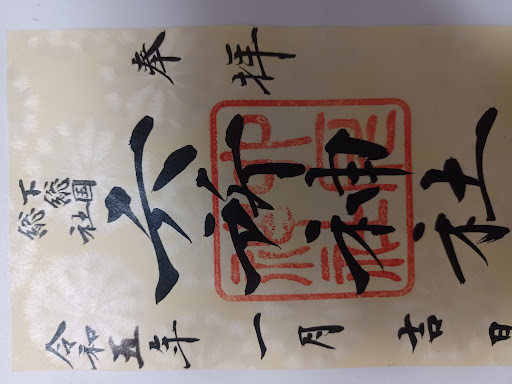 奉拝
下総国
総社
六所神社
令和五年一月吉日